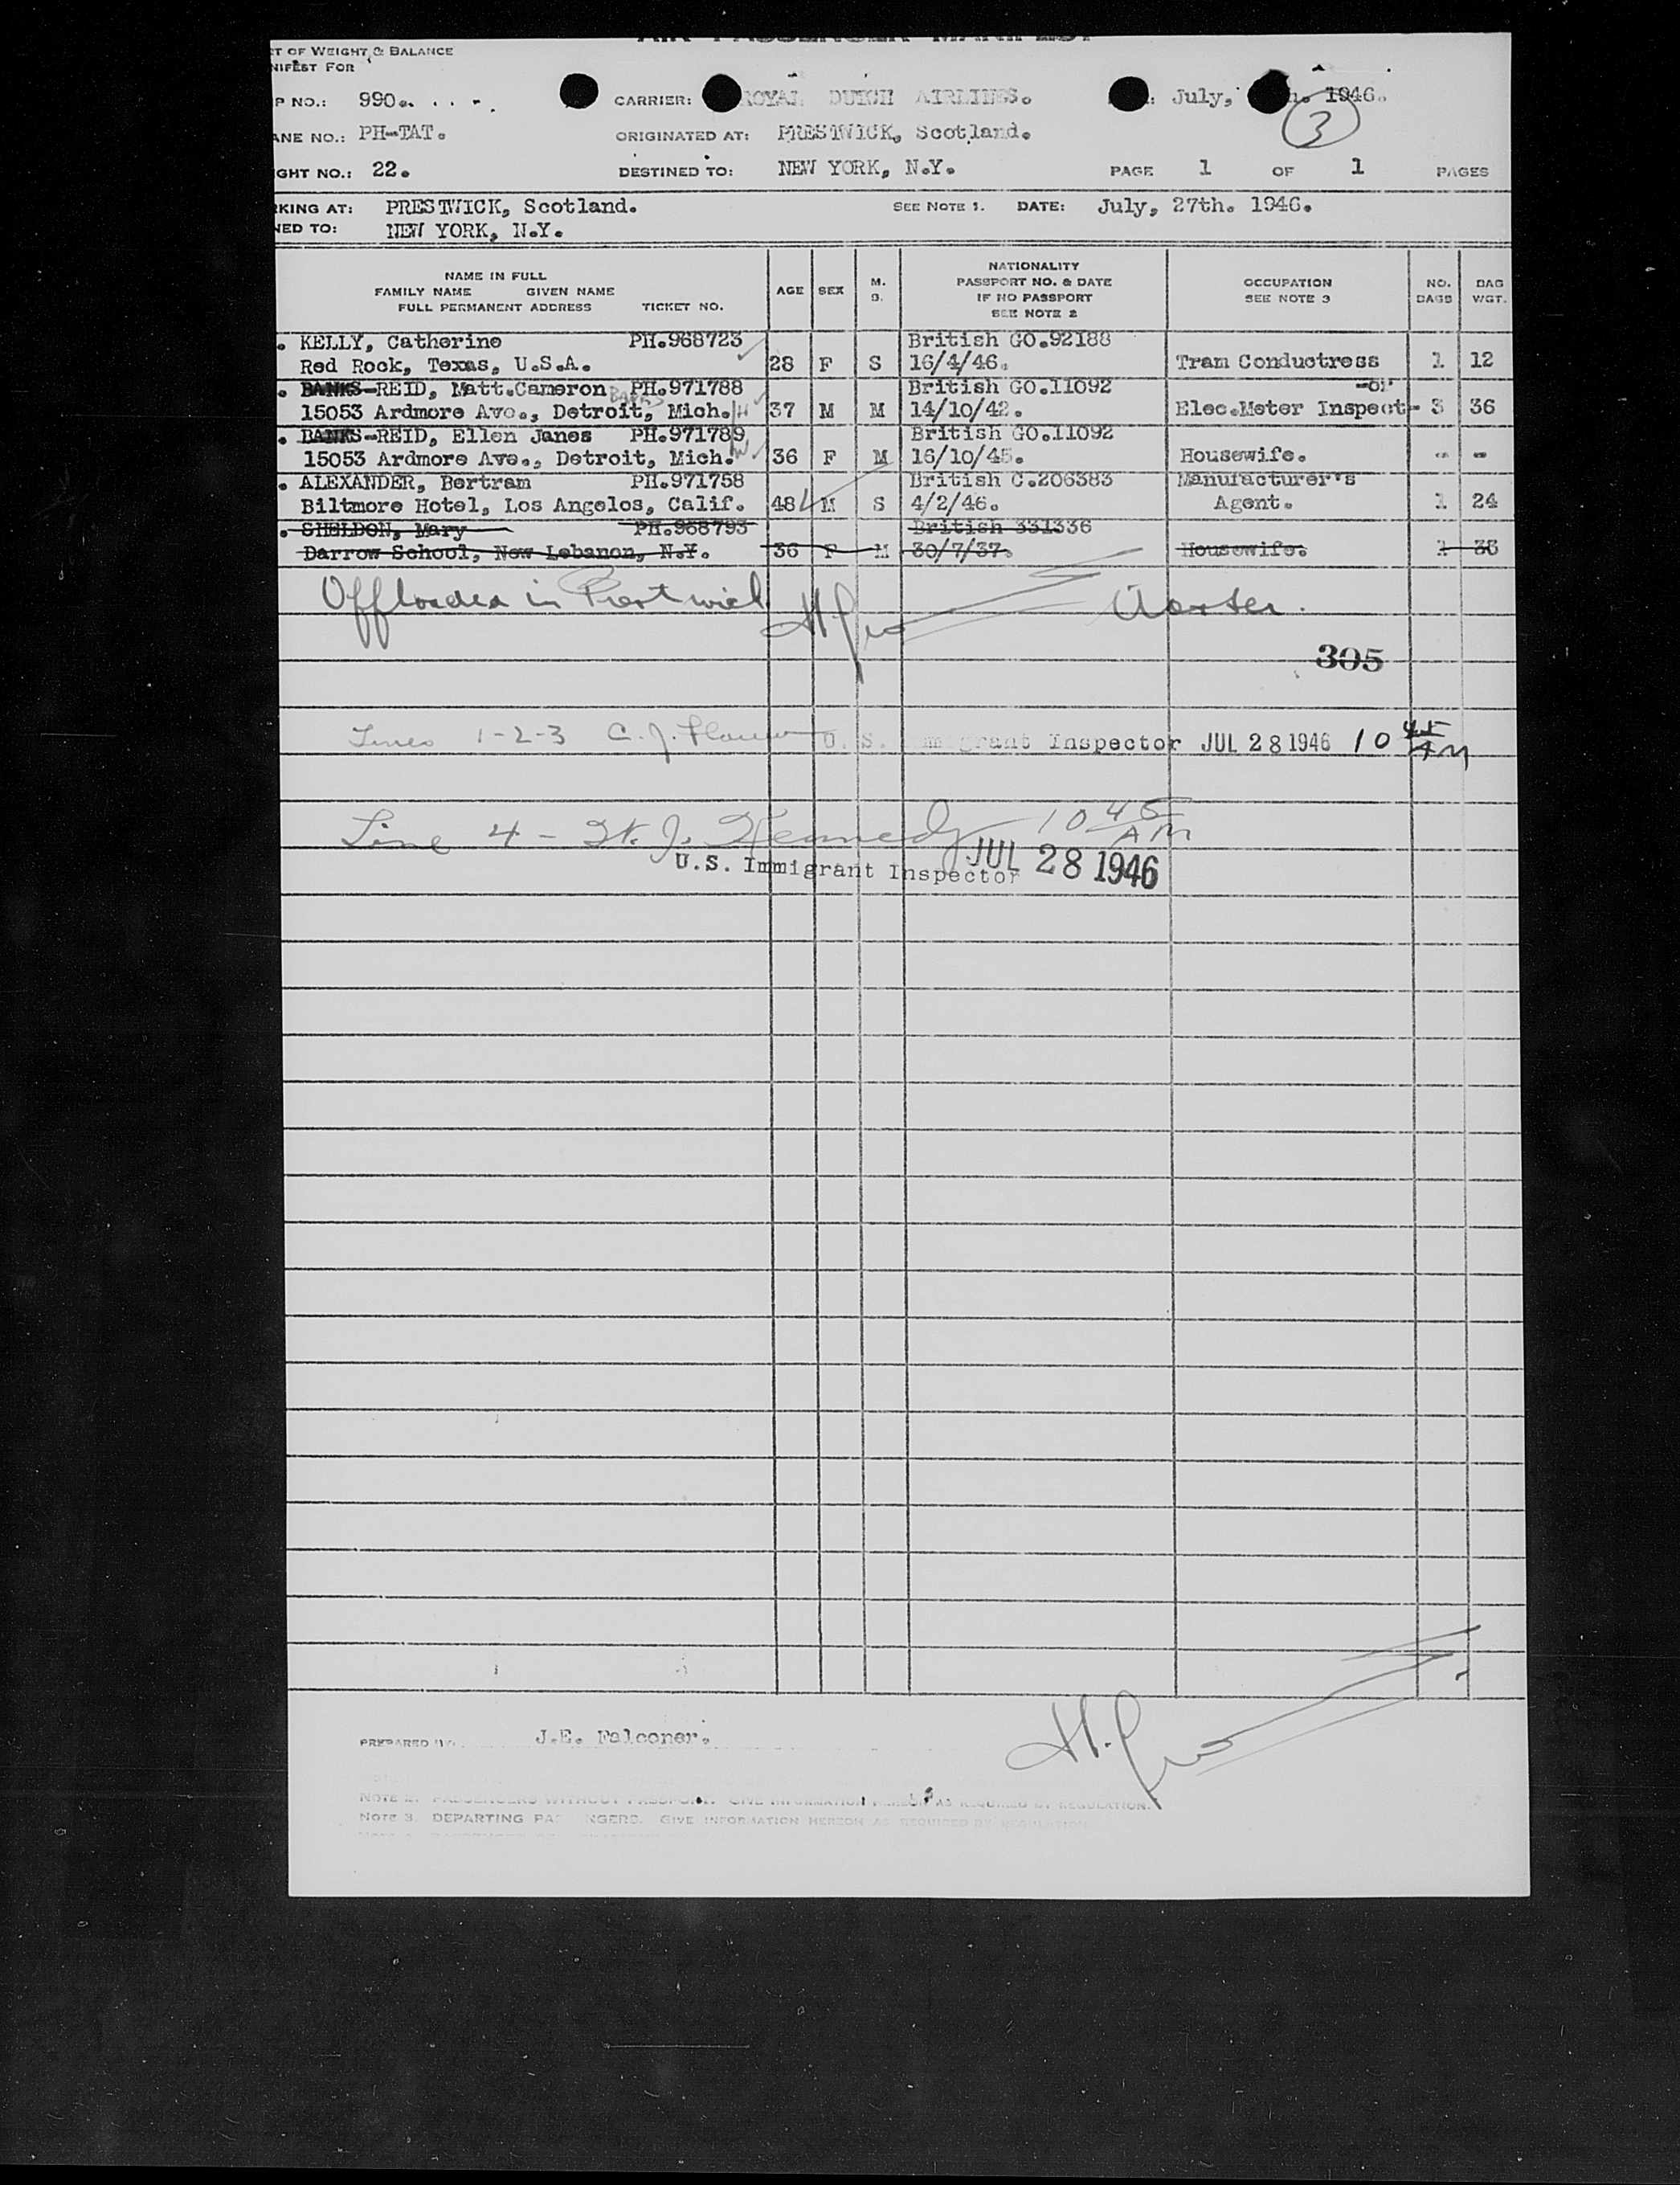 AIR PASSENGER MANIFEST
T OF WEIGHT & BALANCE
NIFEST FOR
P NO.: 990. CARRIER: ROYAL DUTCH AIRLINES. July, 1946.
3
ANE NO.: PH-TAT. ORIGINATED AT: PRESTWICK, Scotland.
GHT NO.: 22. DESTINED TO: NEW YORK, N.Y. PAGE 1 OF 1 PAGES
KING AT: PRESTWICK, Scotland. SEE NOTE 1. DATE: July, 27th. 1946.
NED TO: NEW YORK, N.Y.
NAME IN FULL
FAMILY NAME GIVEN NAME
FULL PERMANENT ADDRESS TICKET NO. AGE SEX M. S. NATIONALITY PASSPORT NO. & DATE IF NO PASSPORT SEE NOTE 2 OCCUPATION SEE NOTE 3 NO. BAGS BAG WGT.
. KELLY, Catherine PH.968723 British GO.92188
Red Rock, Texas, U.S.A. 28 F S 16/4/46. Tram Conductress 1 12
. BANKS-REID, Matt.Cameron PH.971788 British GO.11092 -or
15053 Ardmore Ave., Detroit, Mich. 37 M M 14/10/42. Elec.Meter Inspect- 3 36
. BANKS-REID, Ellen Janes PH.971789 British GO.11092
15053 Ardmore Ave., Detroit, Mich. 36 F M 16/10/45. Housewife. - -
. ALEXANDER, Bertram PH.971758 British C.206383 Manufacturer's
Biltmore Hotel, Los Angelos, Calif. 48 M S 4/2/46. Agent. 1 24
. SHELDON, Mary PH.968793 British 331336
Darrow School, New Lebanon, N.Y. 36 F M 30/7/37. Housewife. 2 36
Offloaded in Prestwick
305
Lines 1-2-3 C. J. U. S. Immigrant Inspector JUL 28 1946 10 45 AM
Line 4 - J. Kennedy 10 45 AM
U.S. Immigrant Inspector JUL 28 1946
PREPARED BY: J.E. Falconer.
NOTE 2. PASSENGERS WITHOUT PASSPORT. GIVE INFORMATION HEREON AS REQUIRED BY REGULATION.
NOTE 3. DEPARTING PASSENGERS. GIVE INFORMATION HEREON AS REQUIRED BY REGULATION.